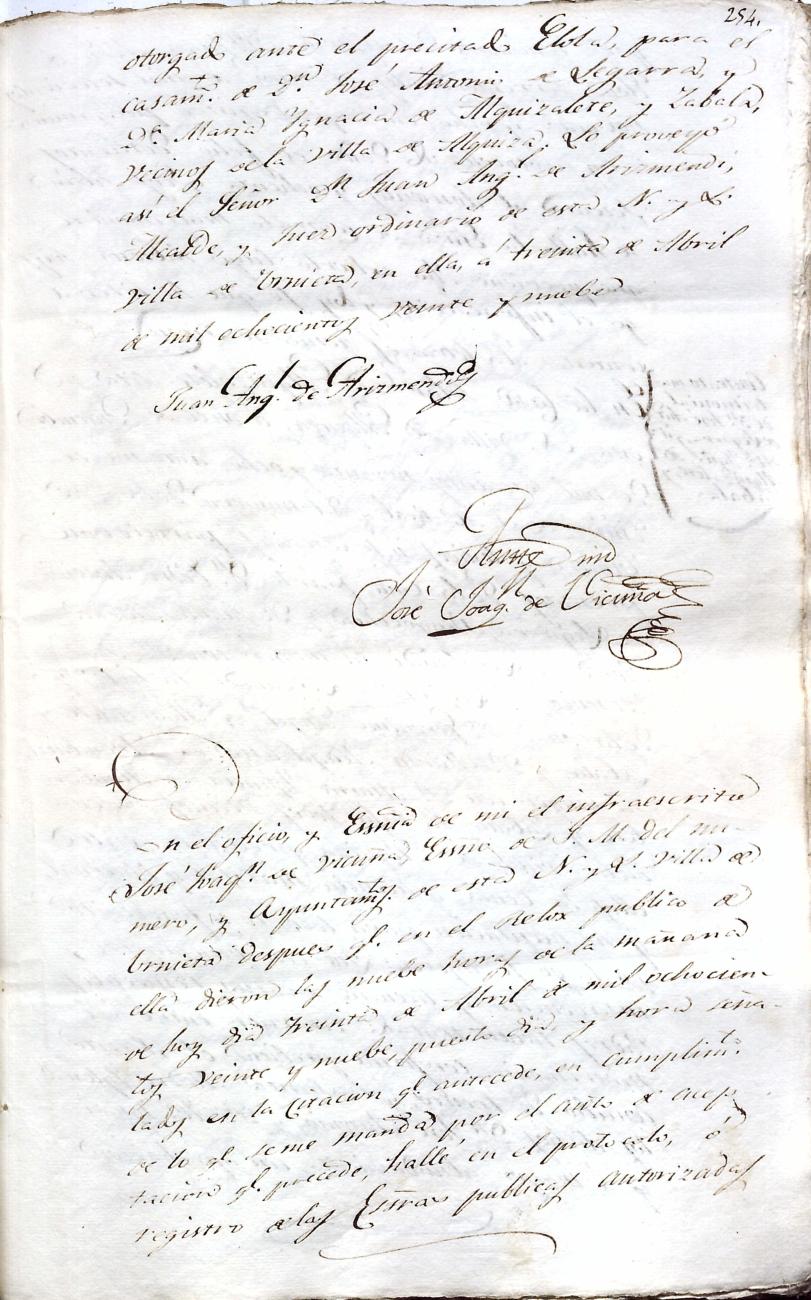 254.
otorgad ante el precitad Elola, para el
casamto. de Dn. José Antonio de Legarra, y
Da. Maria Ygnacia de Alquizalete, y Zabala,
vecinos de la villa de Alquiza; Lo proveyó
así el Señor Dn Juan Angl. de Arizmendi,
Alcalde, y Juez ordinario de esta N. y L.
Villa de Urnieta, en ella, á treinta de Abril
de mil ochocientos veinte y nuebe
Juan Angl. de Arizmendi
Ante mi
José Joaqn. de Vicuña
En el oficio, y Essnia de mi el infraescrito
José Joaqn. de Vicuña, Essno de S. M. del nu-
mero, y Ayuntamto. de esta N. y L. Villa de
Urnieta despues qe. en el Relox publico de
ella dieron las nuebe horas de la mañana
de hoy dia treinta de Abril de mil ochocien-
tos veinte y nuebe, puesto dia, y hora seña-
lados en la citacion qe. antecede, en cumplimto.
de lo qe. seme manda por el auto de acep
tacion qe. precede, hallé en el protocolo, ó
registro de las Essras publicas autorizadas